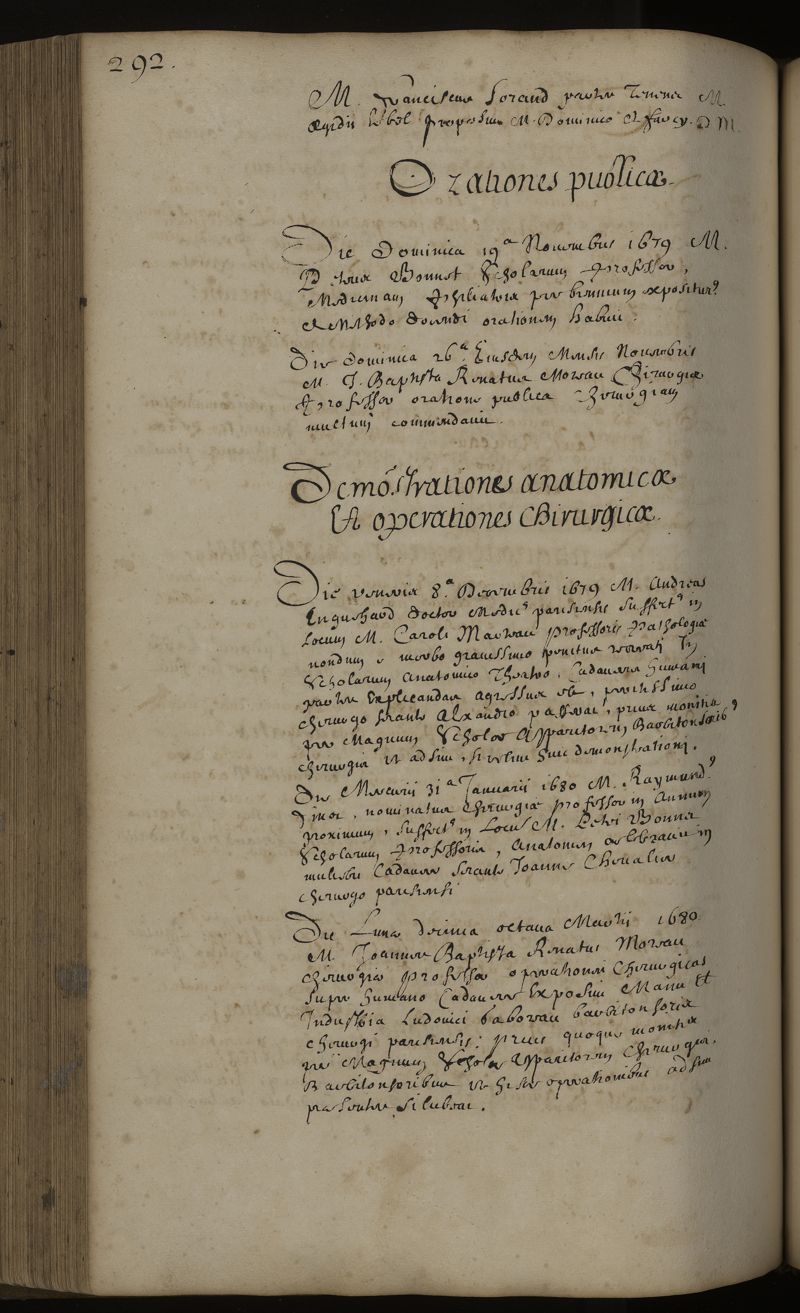 292.
M. Franciscus Lorand partu M.
Ægidii proposuit M. Dominico D M.
Orationes publicæ.
Die Dominica 19ª Novembris 1679 M.
Petrus Bonnet Scholarum Professor,
Medicinam per biennium expositurus
de Methodo docendi orationem habuit.
Die Dominica 26ª Eiusdem Mensis Novembris
M. J. Baptista Renatus Moreau Chirurgiæ
Professor oratione publica Chirurgiam
multum commendavit.
Demõstrationes anatomicæ
Et operationes Chirurgicæ.
Die veneris 8ª Decembris 1679 M. Andreas
Enguehard doctor Medicus parisiensis suffectus in
Locum M. Caroli Marteau professoris Pathologiæ
nondum e morbo gravissimo penitus recreati In
Scholarum anatomico Theatro, Cadaveris humani
partes Explicandas agressus est, peritissimo
chirurgo secante Alexandro, prius monitis
per Magnum Scholæ Apparitorem Barbitonsoribus
chirurgis ut adsint, si velint huic demonstrationi.
Die Mercurii 31ª Januarii 1680 M. Raymundus
Finot, nominatus Chirurgiæ professor in Annum
proximum, suffectus in Locum M. Petri Bonnet
Scholarum Professoris, Anatomen celebravit in
muliebri Cadavere secante Joanne Chevalier
chirurgo parisiensi
Die Lunæ decima octava Martii 1680
M. Joannes Baptista Renatus Moreau
chirurgiæ professor operationes Chirurgicas
super humano Cadavere Exposuit Manu Et
Industria Ludovici barbitonsoris
chirurgi parisiensis: prius quoque monitis
per Magnum Scholæ Apparitorem Chirurgis
Barbitonsoribus ut hisce operationibus adsint
præsentes si lubeat.